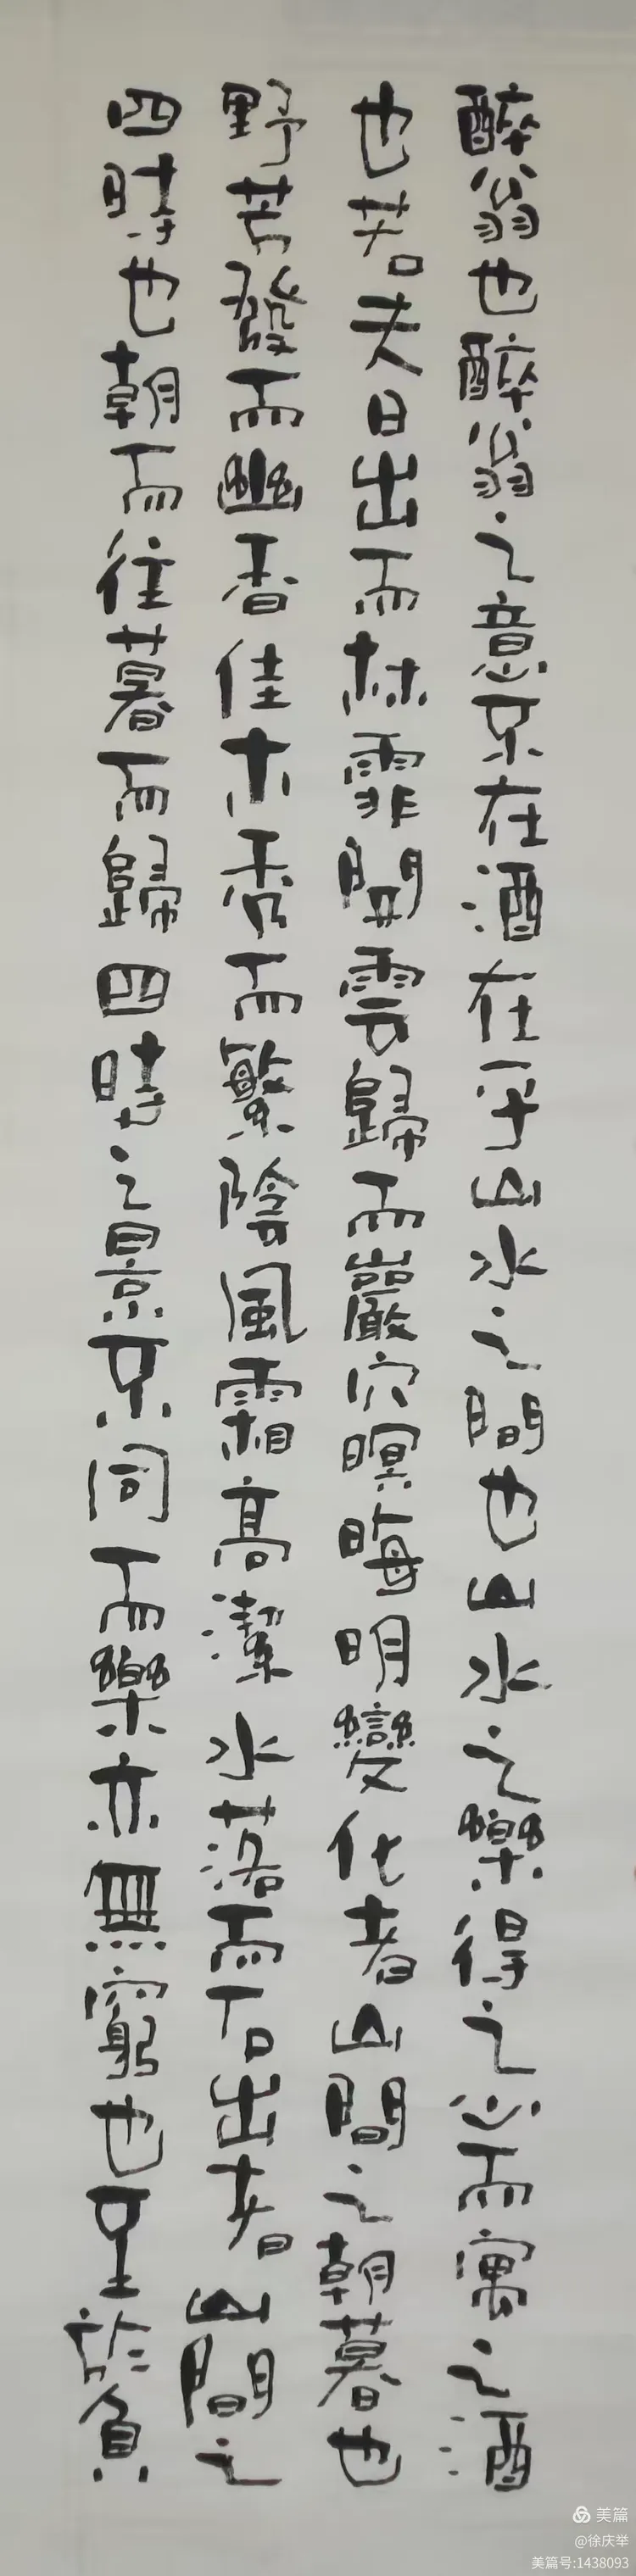 醉翁也醉翁之意不在酒在乎山水之間也山水之樂得之心而寓之酒
也若夫日出而林霏開雲歸而巖穴暝晦明變化者山間之朝暮也
野芳發而幽香佳木秀而繁陰風霜高潔水落而石出者山間之
四時也朝而往暮而歸四時之景不同而樂亦無窮也至於負
美篇
@徐庆举
美篇号:1438093